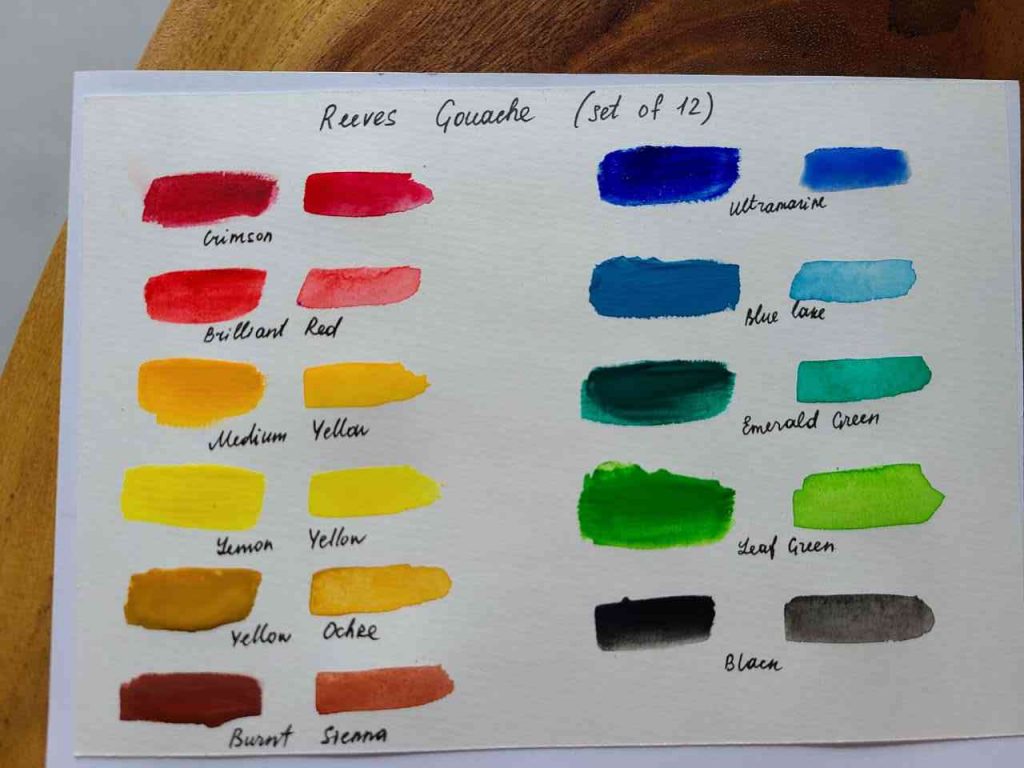 Reeves Gouache (set of 12)
Crimson
Brilliant Red
Medium Yellow
Lemon Yellow
Yellow Ochre
Burnt Sienna
Ultramarine
Blue lake
Emerald Green
Leaf Green
Black